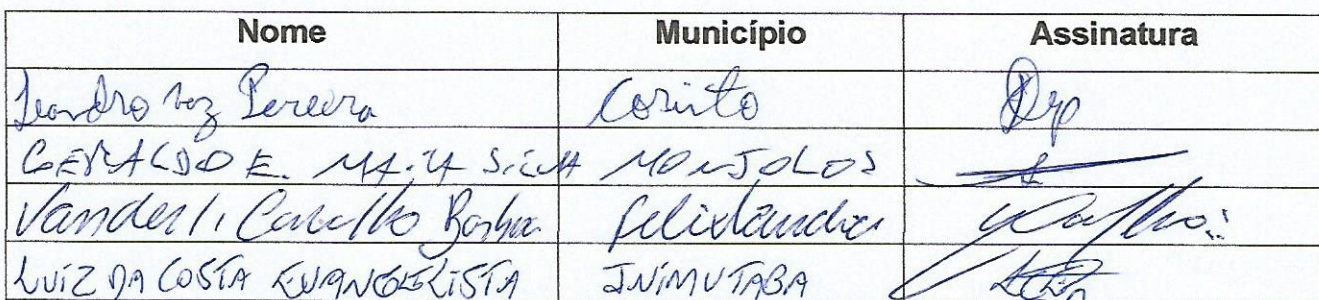 Nome Município Assinatura
Leandro Vaz Pereira Corinto
GERALDO E. MAIA SILVA MONJOLOS
Vanderli Carvalho Barbosa felixlandia
LUIZ DA COSTA EVANGELISTA INIMUTABA